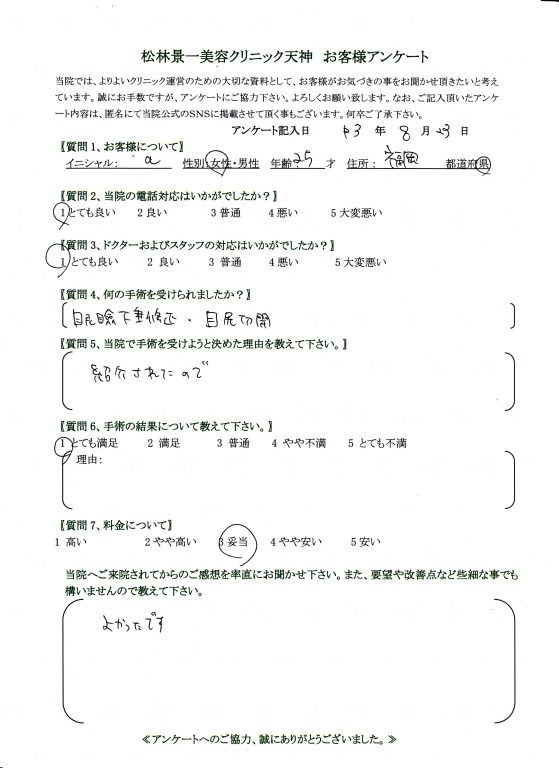 松林景一美容クリニック天神 お客様アンケート
当院では、よりよいクリニック運営のための大切な資料として、お客様がお気づきの事をお聞かせ頂きたいと考え
ています。誠にお手数ですが、アンケートにご協力下さい。よろしくお願い致します。なお、ご記入頂いたアンケ
ート内容は、匿名にて当院公式のSNSに掲載させて頂く事もございます。何卒ご了承下さい。
アンケート記入日 R3 年 8 月 23 日
〖質問1、お客様について〗
イニシャル: a 性別:女性・男性 年齢25 才 住所: 福岡 都道府県
〖質問2、当院の電話対応はいかがでしたか?〗
1とても良い 2良い 3普通 4悪い 5大変悪い
〖質問3、ドクターおよびスタッフの対応はいかがでしたか?〗
1 とても良い 2 良い 3 普通 4悪い 5大変悪い
〖質問4、何の手術を受けられましたか?〗
眼瞼下垂修正・目尻切開
〖質問5、当院で手術を受けようと決めた理由を教えて下さい。〗
紹介されたので
〖質問6、手術の結果について教えて下さい。〗
1 とても満足 2 満足 3 普通 4 やや不満 5 とても不満
理由:
〖質問7、料金について〗
1 高い 2やや高い 3妥当 4やや安い 5安い
当院へご来院されてからのご感想を率直にお聞かせ下さい。また、要望や改善点など些細な事でも
構いませんので教えて下さい。
よかったです
≪アンケートへのご協力、誠にありがとうございました。≫